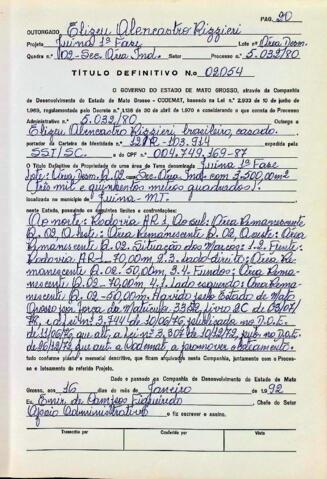 PAG. 20
OUTORGADO Elizeu Alencastro Rizzieri
Projeto Juina 1ª Fase Lote nº Área Desm.
Quadra n.º 02-Sec. Área Ind. Setor Processo n.º 5.032/80
TÍTULO DEFINITIVO N.o 02054
O GOVERNO DO ESTADO DE MATO GROSSO, através da Companhia
de Desenvolvimento do Estado de Mato Grosso - CODEMAT, baseado na Lei n.º 2.933 de 10 de junho
de 1969, regulamentada pelo Decreto n.º 1.138 de 30 de abril de 1970 e considerando o que consta do Processo
Administrativo n.º 5.032/80 Outorga a
Elizeu Alencastro Rizzieri, brasileiro, casado.
portador da Carteira de Identidade n.º 12/R-103.914 expedida pela
SSI/SC. e do CPF nº 004.749.169-87
o Título Definitivo de Propriedade de uma área de Terra denominada Juina 1ª Fase
Lote: Área Desm. Q. 02 Sec. Área Ind. com 3.500,00m2
(três mil e quinhentos metros quadrados).
localizada no município de Juina-MT.
neste Estado, passando os seguintes limites e confrontações:
Ao norte: Rodovia AR-1. Ao sul: Área Remanescente
Q. 02, A leste: Área Remanescente Q. 02, A oeste: Área
Remanescente Q. 02. Situação dos Marcos: 1-2. Frente:
Rodovia AR-1 70,00m 2-3. lado direito: Área Re-
manescente Q. 02 50,00m, 3-4. Fundos: Área Rema-
nescente Q. 02 - 70,00m. 4-1. lado esquerdo: Área Rema-
nescente Q. 02 - 50,00m. Havido pelo Estado de Mato
Grosso por força da Matrícula 33.62, Livro 2C de 03/07/
78, e Lei nº 3.744 de 10/06/76, publicada no D.O.E.
de 11/06/76 que alt. a Lei nº 3.307 de 18/12/72, pub. no D.O.E.
de 26/12/72 que aut. a Codemat a promover o loteamento.
tudo conforme planta e memorial descritivo, que ficam arquivados nesta Companhia, juntamente com o Proces-
so e loteamento do referido Projeto.
Dado e passado na Companhia de Desenvolvimento do Estado de Mato
Grosso, aos 16 dias do mês de Janeiro de 1992
Eu, Emir de Campos Figueiredo Chefe do Setor
Apoio Administrativo o fiz escrever e assino.
Transcrito por Conferido por Visto